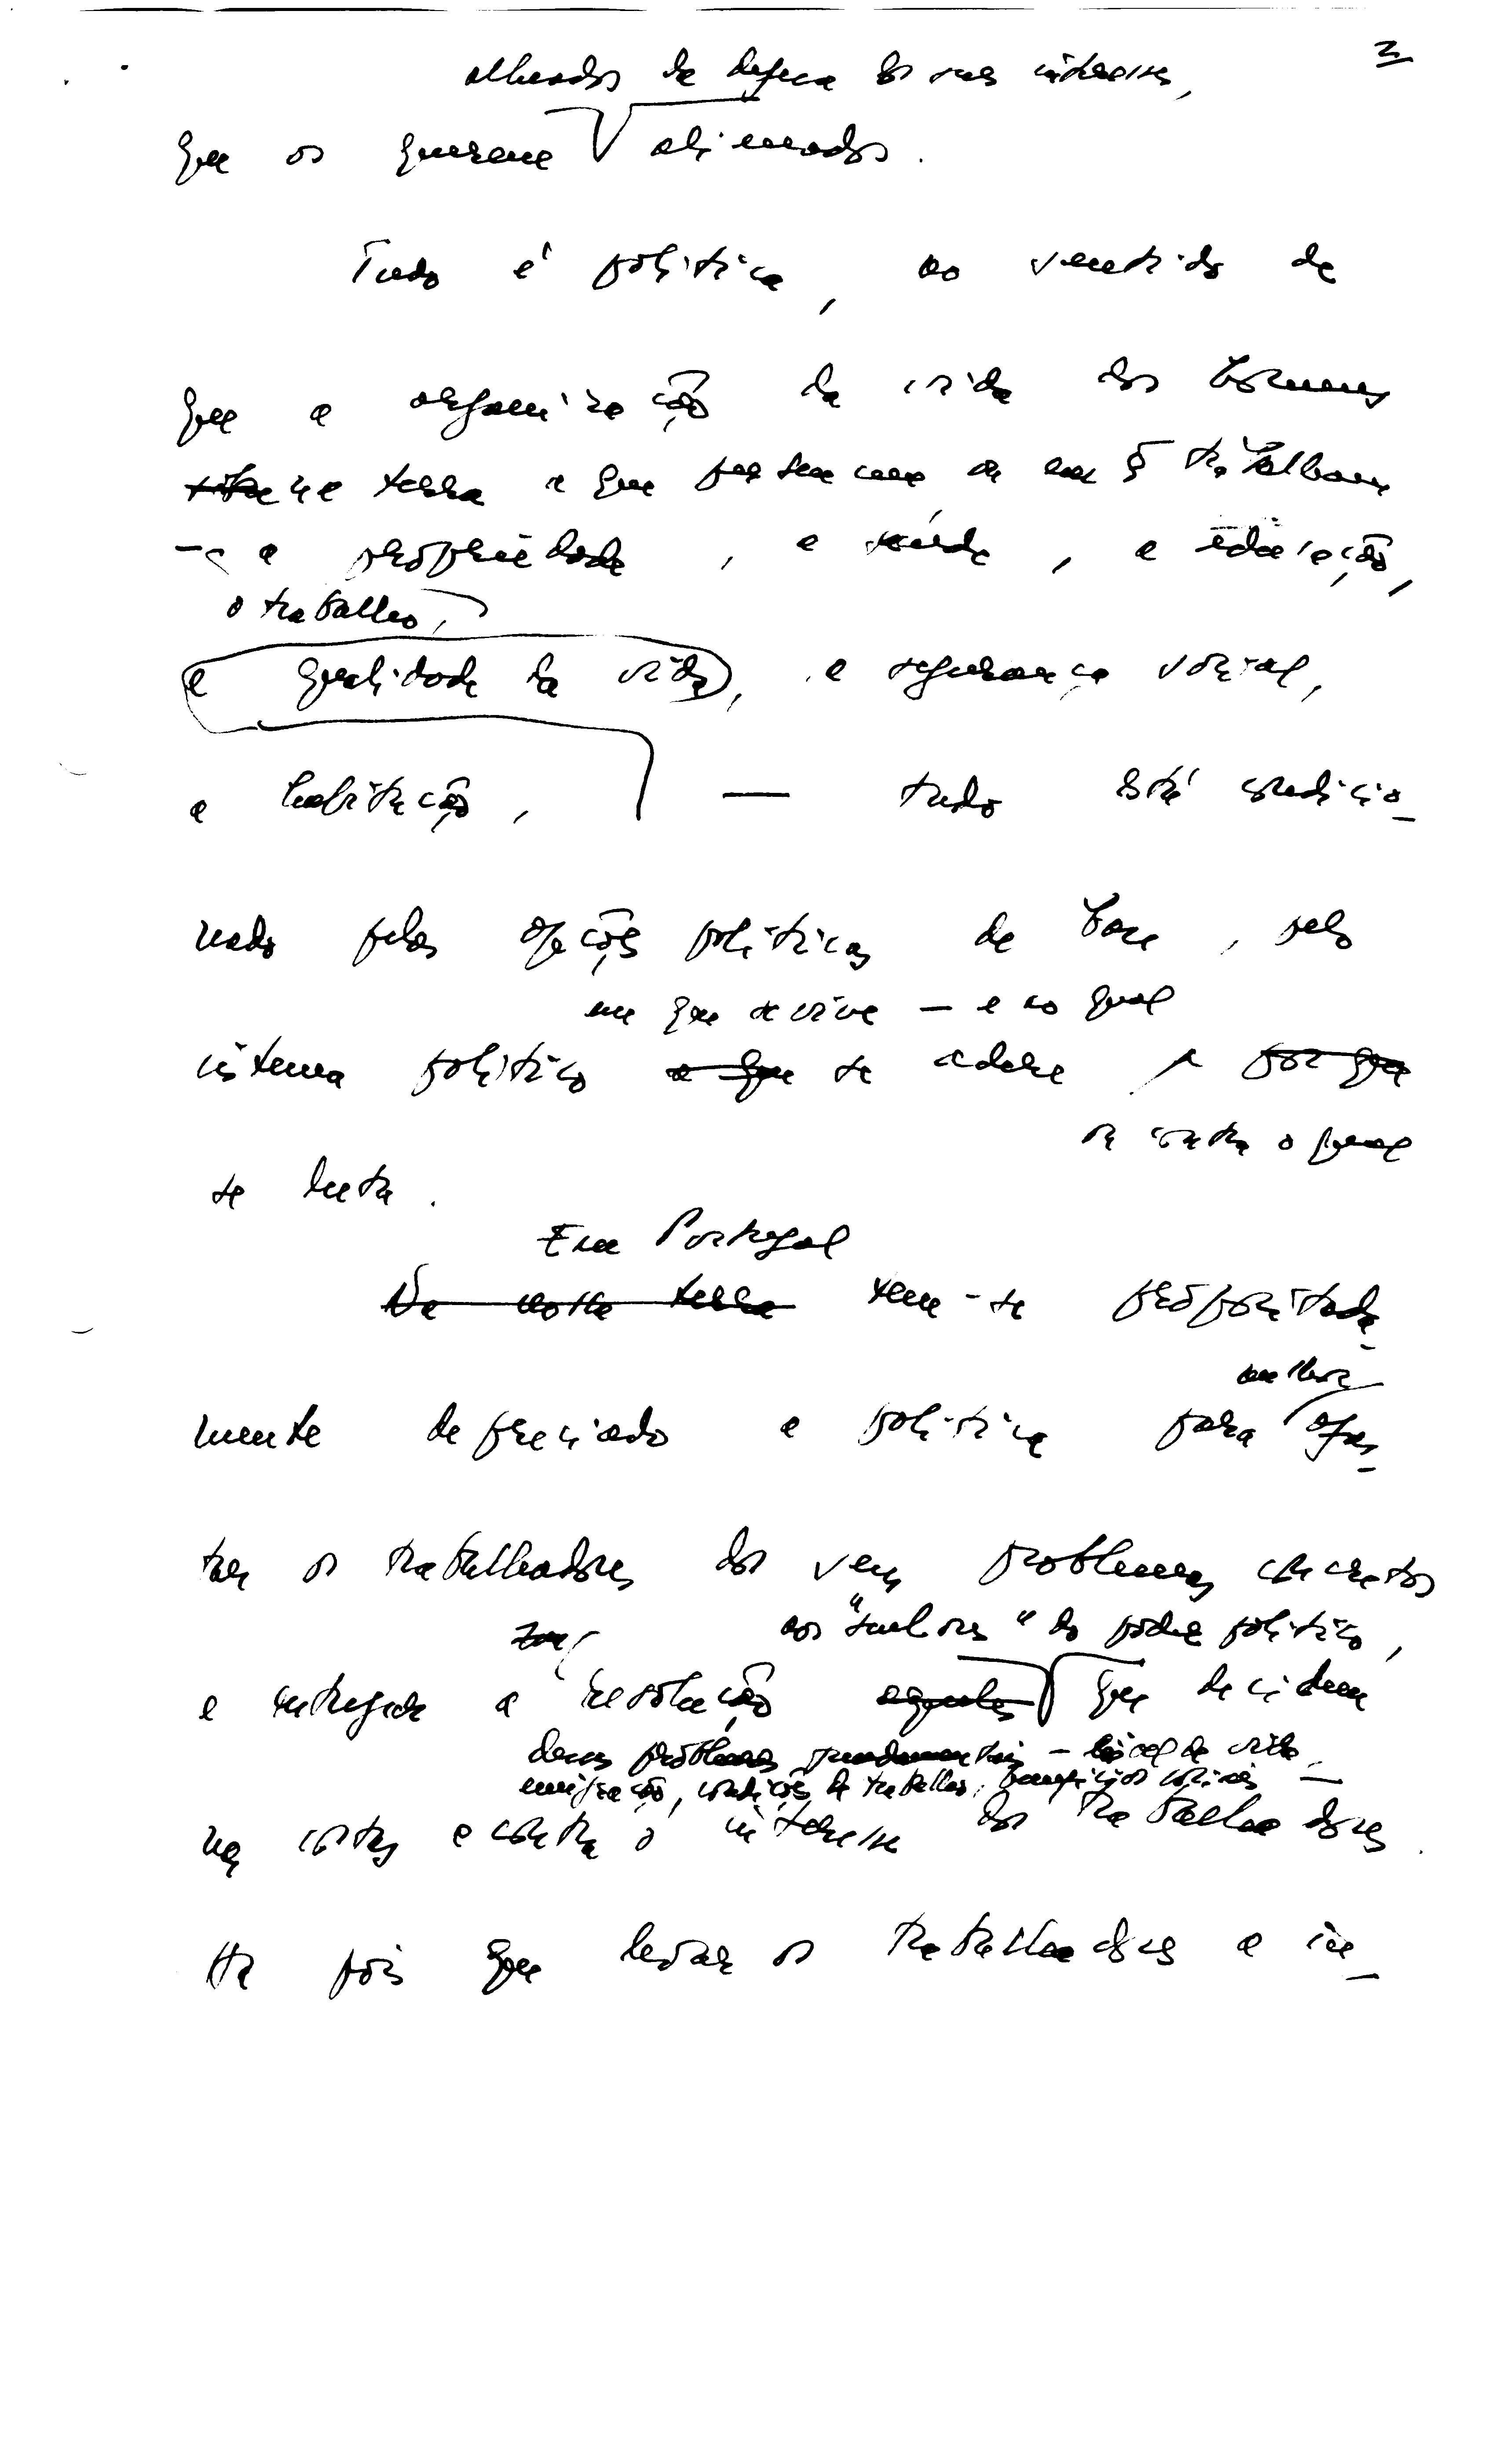 3
alheados da defesa dos seus interesses,
que os querem alienados.
Tudo é política, no sentido de
que a organização da vida dos homens
na terra a que pertencem ou em q̄ trabalham
- a propriedade, a saúde, a educação,
o trabalho,
a qualidade da vida, a segurança social,
a habitação, — tudo está condicio-
nado pelas opções políticas de base, pelo
em que se vive — e ao qual
sistema político a que se adere, por que
ou contra o qual
se luta.
Em Portugal
Na nossa terra tem-se propositada-
melhor
mente depreciado a política para afas-
tar os trabalhadores dos seus problemas concretos
aos "senhores" do poder político,
e entregar a resolução aqueles que decidem
desses problemas fundamentais — nível de vida,
emigração, condições de trabalho, benefícios sociais —
nas costas e contra o interesse dos trabalhadores.
Há pois que levar os trabalhadores a in-